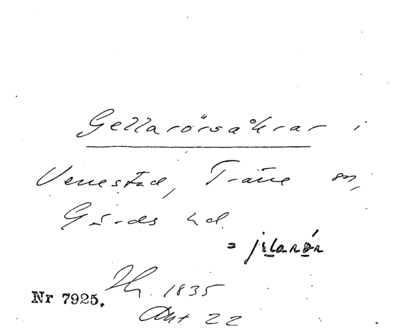 Gellarörsåkrar i
Venestad, Träne sn,
Gärds hd.
= jɛlarör
Nr 7925. 1835
Akt 22